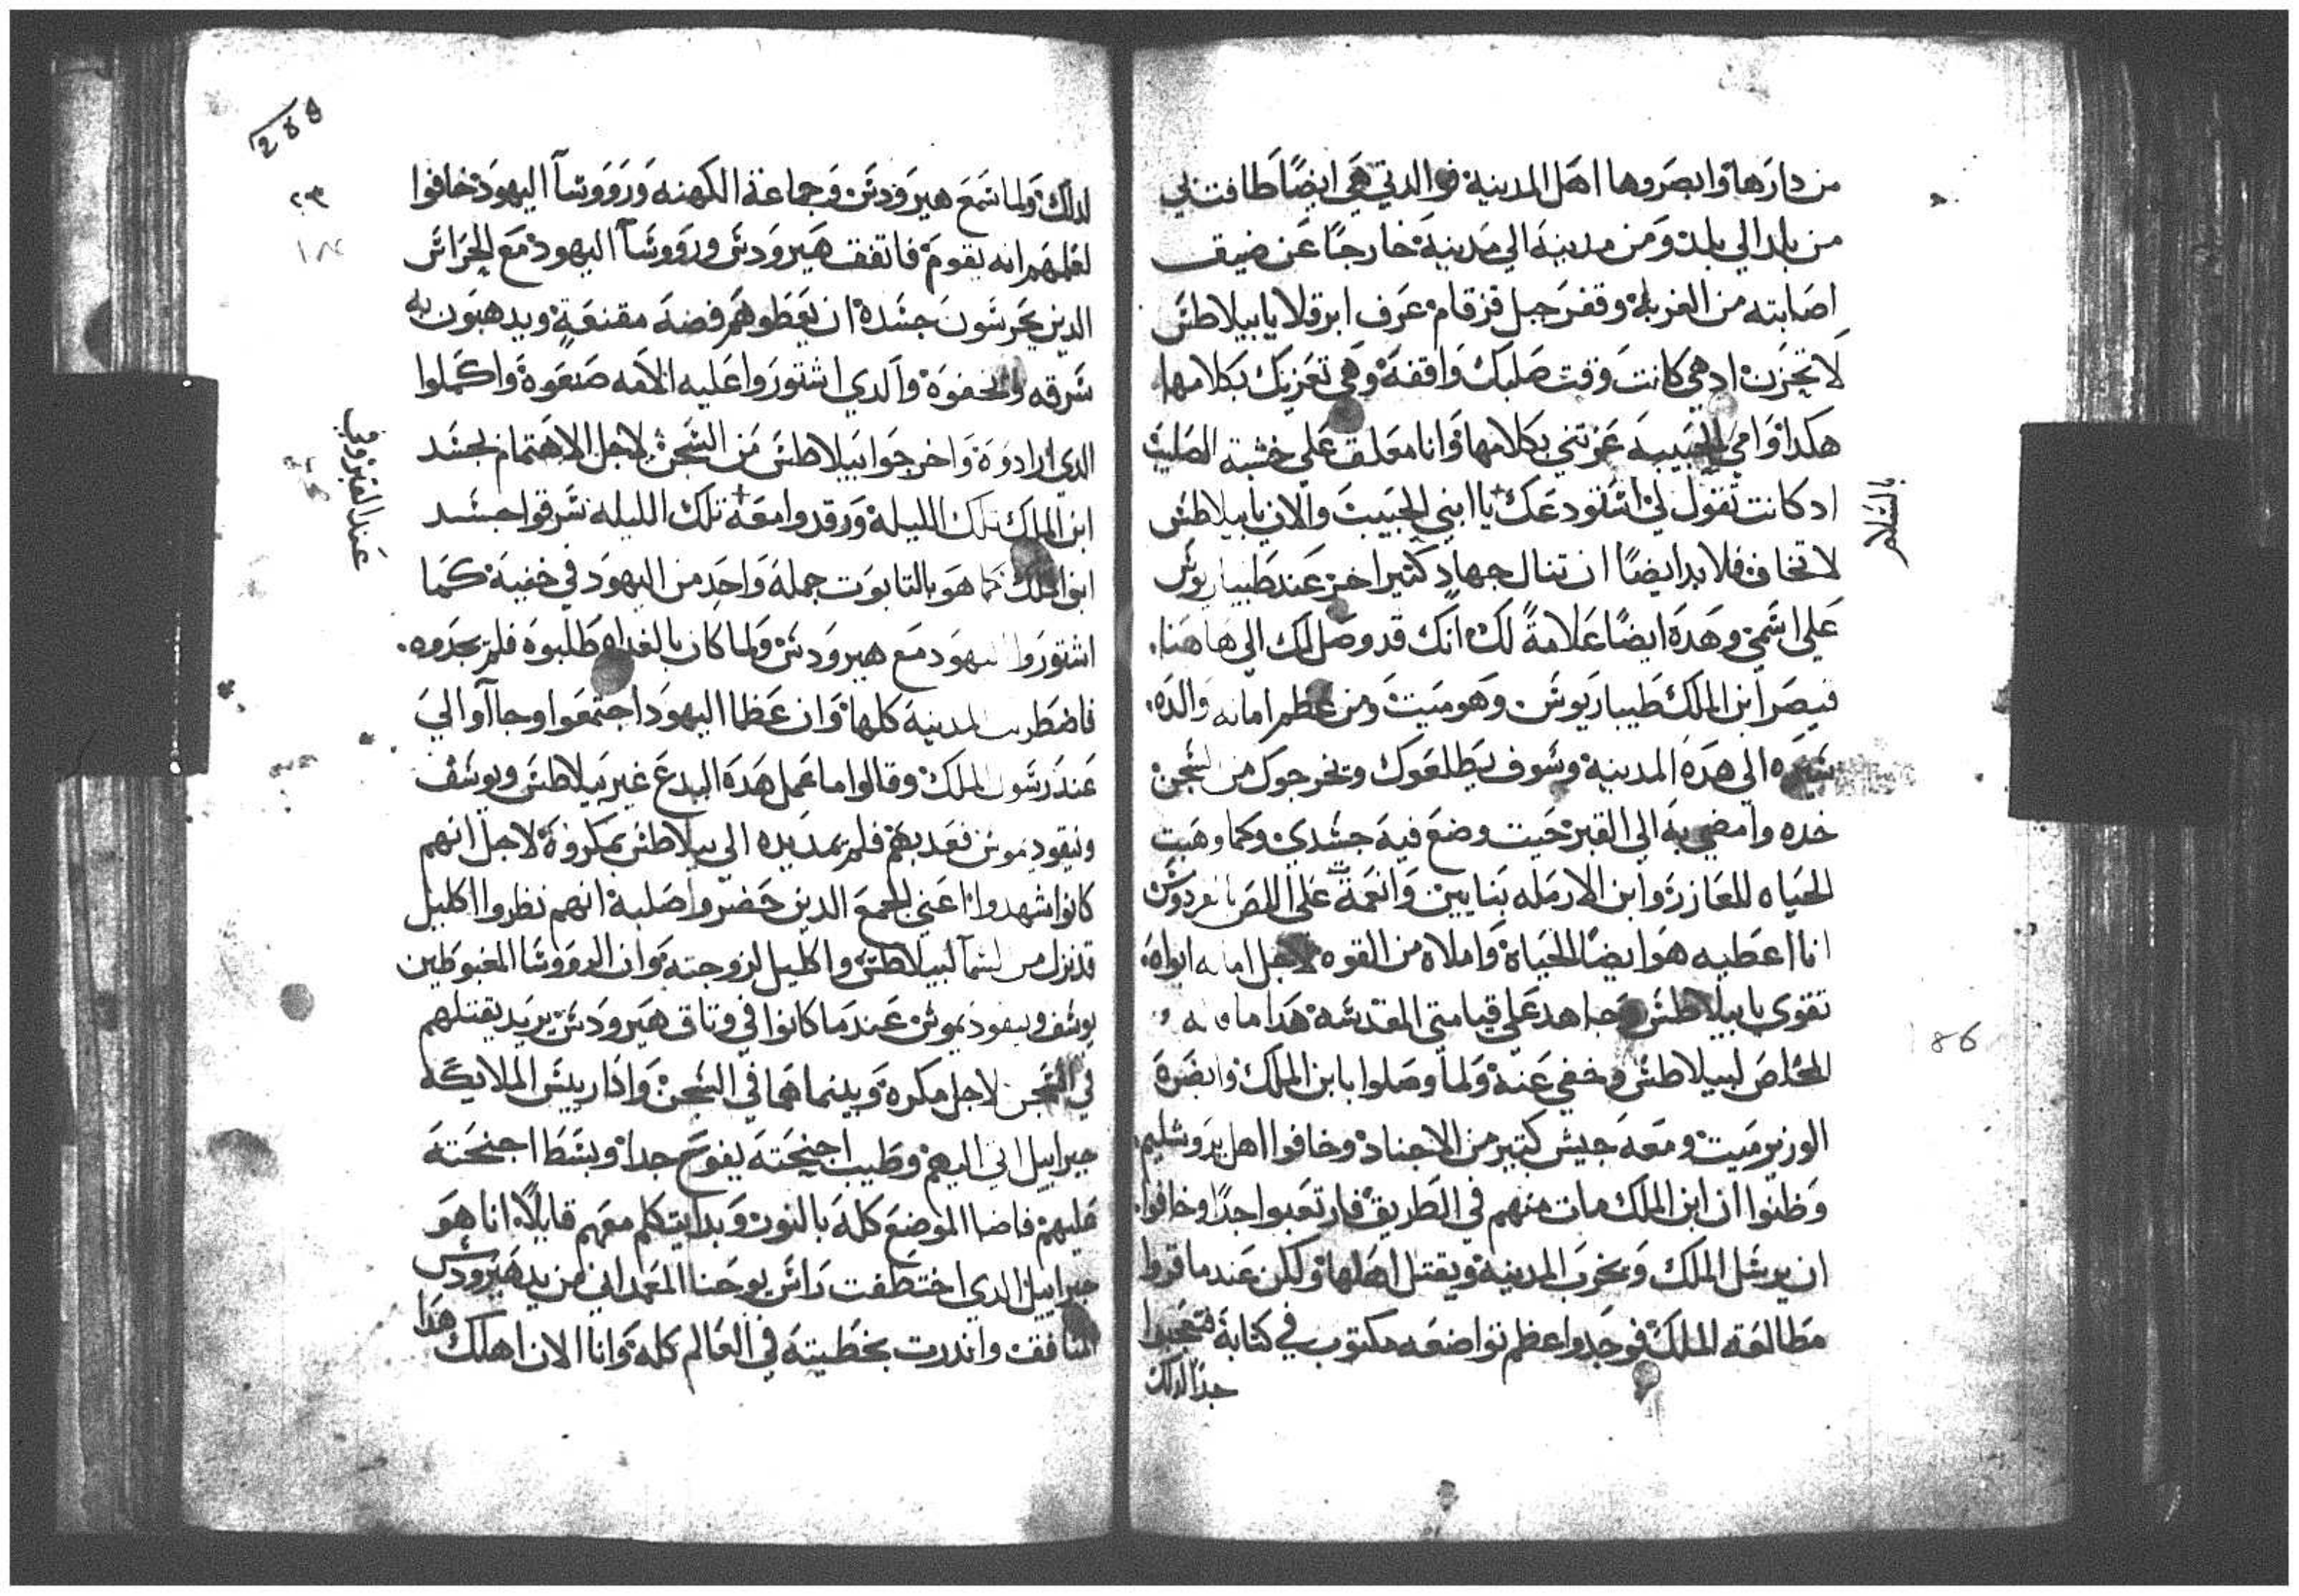 من دارها وابصروها اهل المدينة فوالدتي هي ايضًا طافت بي
من بلد الي بلد ومن مدينة الي مدينة خارجًا عن ضيق
اصابته من الغربة وقفر جبل قزقام عرف ابرقلا يا بيلاطس
لا تحزن اد هي كانت وقت صلبك واقفة وهي تعزيك بكلامها
هكدا وامي الحبيبة عزتني بكلامها وانا معلق علي خشبة الصليب
اد كانت تقول لي استودعك يا ابني الحبيب والان يا بيلاطس
بالسلام
لا تخاف فلا بد ايضًا ان تنال جهاد كثير اخر عند طيباريوس
علي اسمي وهده ايضًا علامةً لك انك قد وصل لك الي هاهنا.
قيصر ابن الملك طيباريوس وهو ميت ومن عظم امانة والده.
سيره الي هده المدينة وسوف يطلعوك وتخرجوك من السجن
خده وامضي به الي القبر حيت وضع فيه جسدي وكما وهبت
الحياه للعازر وابن الارمله بنايين وانعمت علي اللص بالفردوس
انا اعطيه هو ايضًا الحياة واملاه من القوه لاجل امانه ابواه.
تقوي يا بيلاطس وجاهد علي قيامتي المقدسة هدا ما قاله
المخلص لبيلاطس وخفي عنه ولما وصلوا بابن الملك وابصره
الوزير ميت ومعه جيش كتير من الاجناد وخافوا اهل يروشليم
وظنوا ان ابن الملك مات منهم في الطريق فارتعبوا جدًا وخافوا
ان يرسل الملك ويخرب المدينة ويقتل اهلها ولكن عندما قروا
مطالعة الملك فوجدوا عظم تواضعه مكتوب في كتابة فتعجبوا
جدًا لدلك
288
٢٣
186
لدلك ولما سمع هيرودس وجماعة الكهنه ورووسآ اليهود خافوا
لعلمهم انه يقوم فاتفق هيرودس ورووسآ اليهود مع الحراس
الدين يحرسون جسده ان يعطوهم فضة مقنعة ويدهبون به
سرقه ويخفوه والدي اشتوروا عليه الامه صنعوه واكملوا
الدي ارادوه واخرجوا بيلاطس من السجن لاجل الاهتمام بجسد
ابن الملك تلك الليلة ورقدوا معه تلك الليله سرقوا جسد
عند القبر وفي
ابن الملك كما هو بالتابوت جملة واحد من اليهود في خفية كما
اشتوروا اليهود مع هيرودس ولما كان بالغداه طلبوه فلم يجدوه.
فاضطربت المدينة كلها وان عظما اليهود اجتمعوا وجاآوا الي
عند رسول الملك وقالوا ما عمل هده البدع غير بيلاطس ويوسف
ونيقوديموس فعد بهم فلم يمد يده الي بيلاطس بمكروة لاجل انهم
كانوا شهدوا اعني الجمع الدين حضروا صلبة انهم نظروا اكليل
قد نزل من السمآ لبيلاطس واكليل لزوجته وان الرووسا المغبوطين
يوسف ونيقوديموس عندما كانوا في وتاق هيرودس يريد يقتلهم
في السجن لاجل مكره وبينما هما في السجن وادا رييس الملايكة
جبراييل اتي اليهم وطيب اجنحته يفوح جدا وبسط اجنحته
عليهم فاضا الموضع كله بالنور وبدا يتكلم معهم قايلًا انا هو
جبراييل الدي اختطفت راس يوحنا المعمداني من يد هيرودس
المنافق واندرت بخطيته في العالم كله وانا الان اهلك هدا